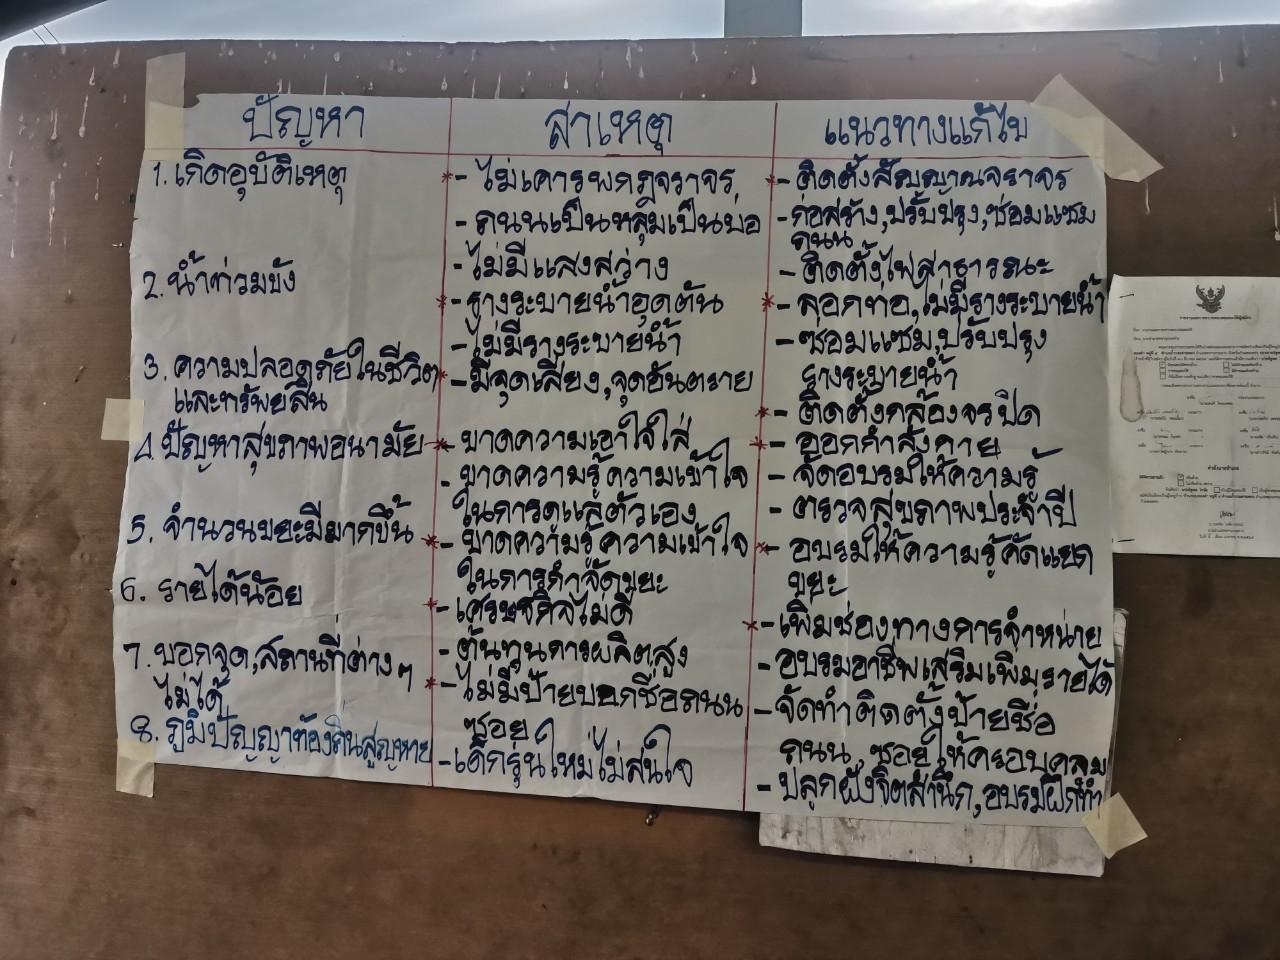 ปัญหา
สาเหตุ
แนวทางแก้ไข
1. เกิดอุบัติเหตุ
2. น้ำท่วมขัง
3. ความปลอดภัยในชีวิต
และทรัพย์สิน
4. ปัญหาสุขภาพอนามัย
5. จำนวนขยะมีมากขึ้น
6. รายได้น้อย
7. บอกจุด, สถานที่ต่างๆ
ไม่ได้
8. ภูมิปัญญาท้องถิ่นสูญหาย
- ไม่เคารพกฎจราจร
- ถนนเป็นหลุมเป็นบ่อ
- ไม่มีแสงสว่าง
- รางระบายน้ำอุดตัน
- ไม่มีรางระบายน้ำ
- มีจุดเสี่ยง, จุดอันตราย
- ขาดความเอาใจใส่
- ขาดความรู้ความเข้าใจ
ในการดูแลตัวเอง
- ขาดความรู้ความเข้าใจ
ในการกำจัดขยะ
- เศรษฐกิจไม่ดี
- ต้นทุนการผลิตสูง
- ไม่มีป้ายบอกชื่อถนน
ซอย
- เด็กรุ่นใหม่ไม่สนใจ
- ติดตั้งสัญญาณจราจร
- ก่อสร้าง, ปรับปรุง, ซ่อมแซม
ถนน
- ติดตั้งไฟสาธารณะ
- ลอกท่อ, ไม่มีรางระบายน้ำ
- ซ่อมแซม, ปรับปรุง
รางระบายน้ำ
- ติดตั้งกล้องวงจรปิด
- ออกกำลังกาย
- จัดอบรมให้ความรู้
- ตรวจสุขภาพประจำปี
- อบรมให้ความรู้คัดแยก
ขยะ
- เพิ่มช่องทางการจำหน่าย
- อบรมอาชีพเสริมเพิ่มรายได้
- จัดทำติดตั้งป้ายชื่อ
ถนน, ซอย ให้ครอบคลุม
- ปลูกฝังจิตสำนึก, อบรมฝึกทำ